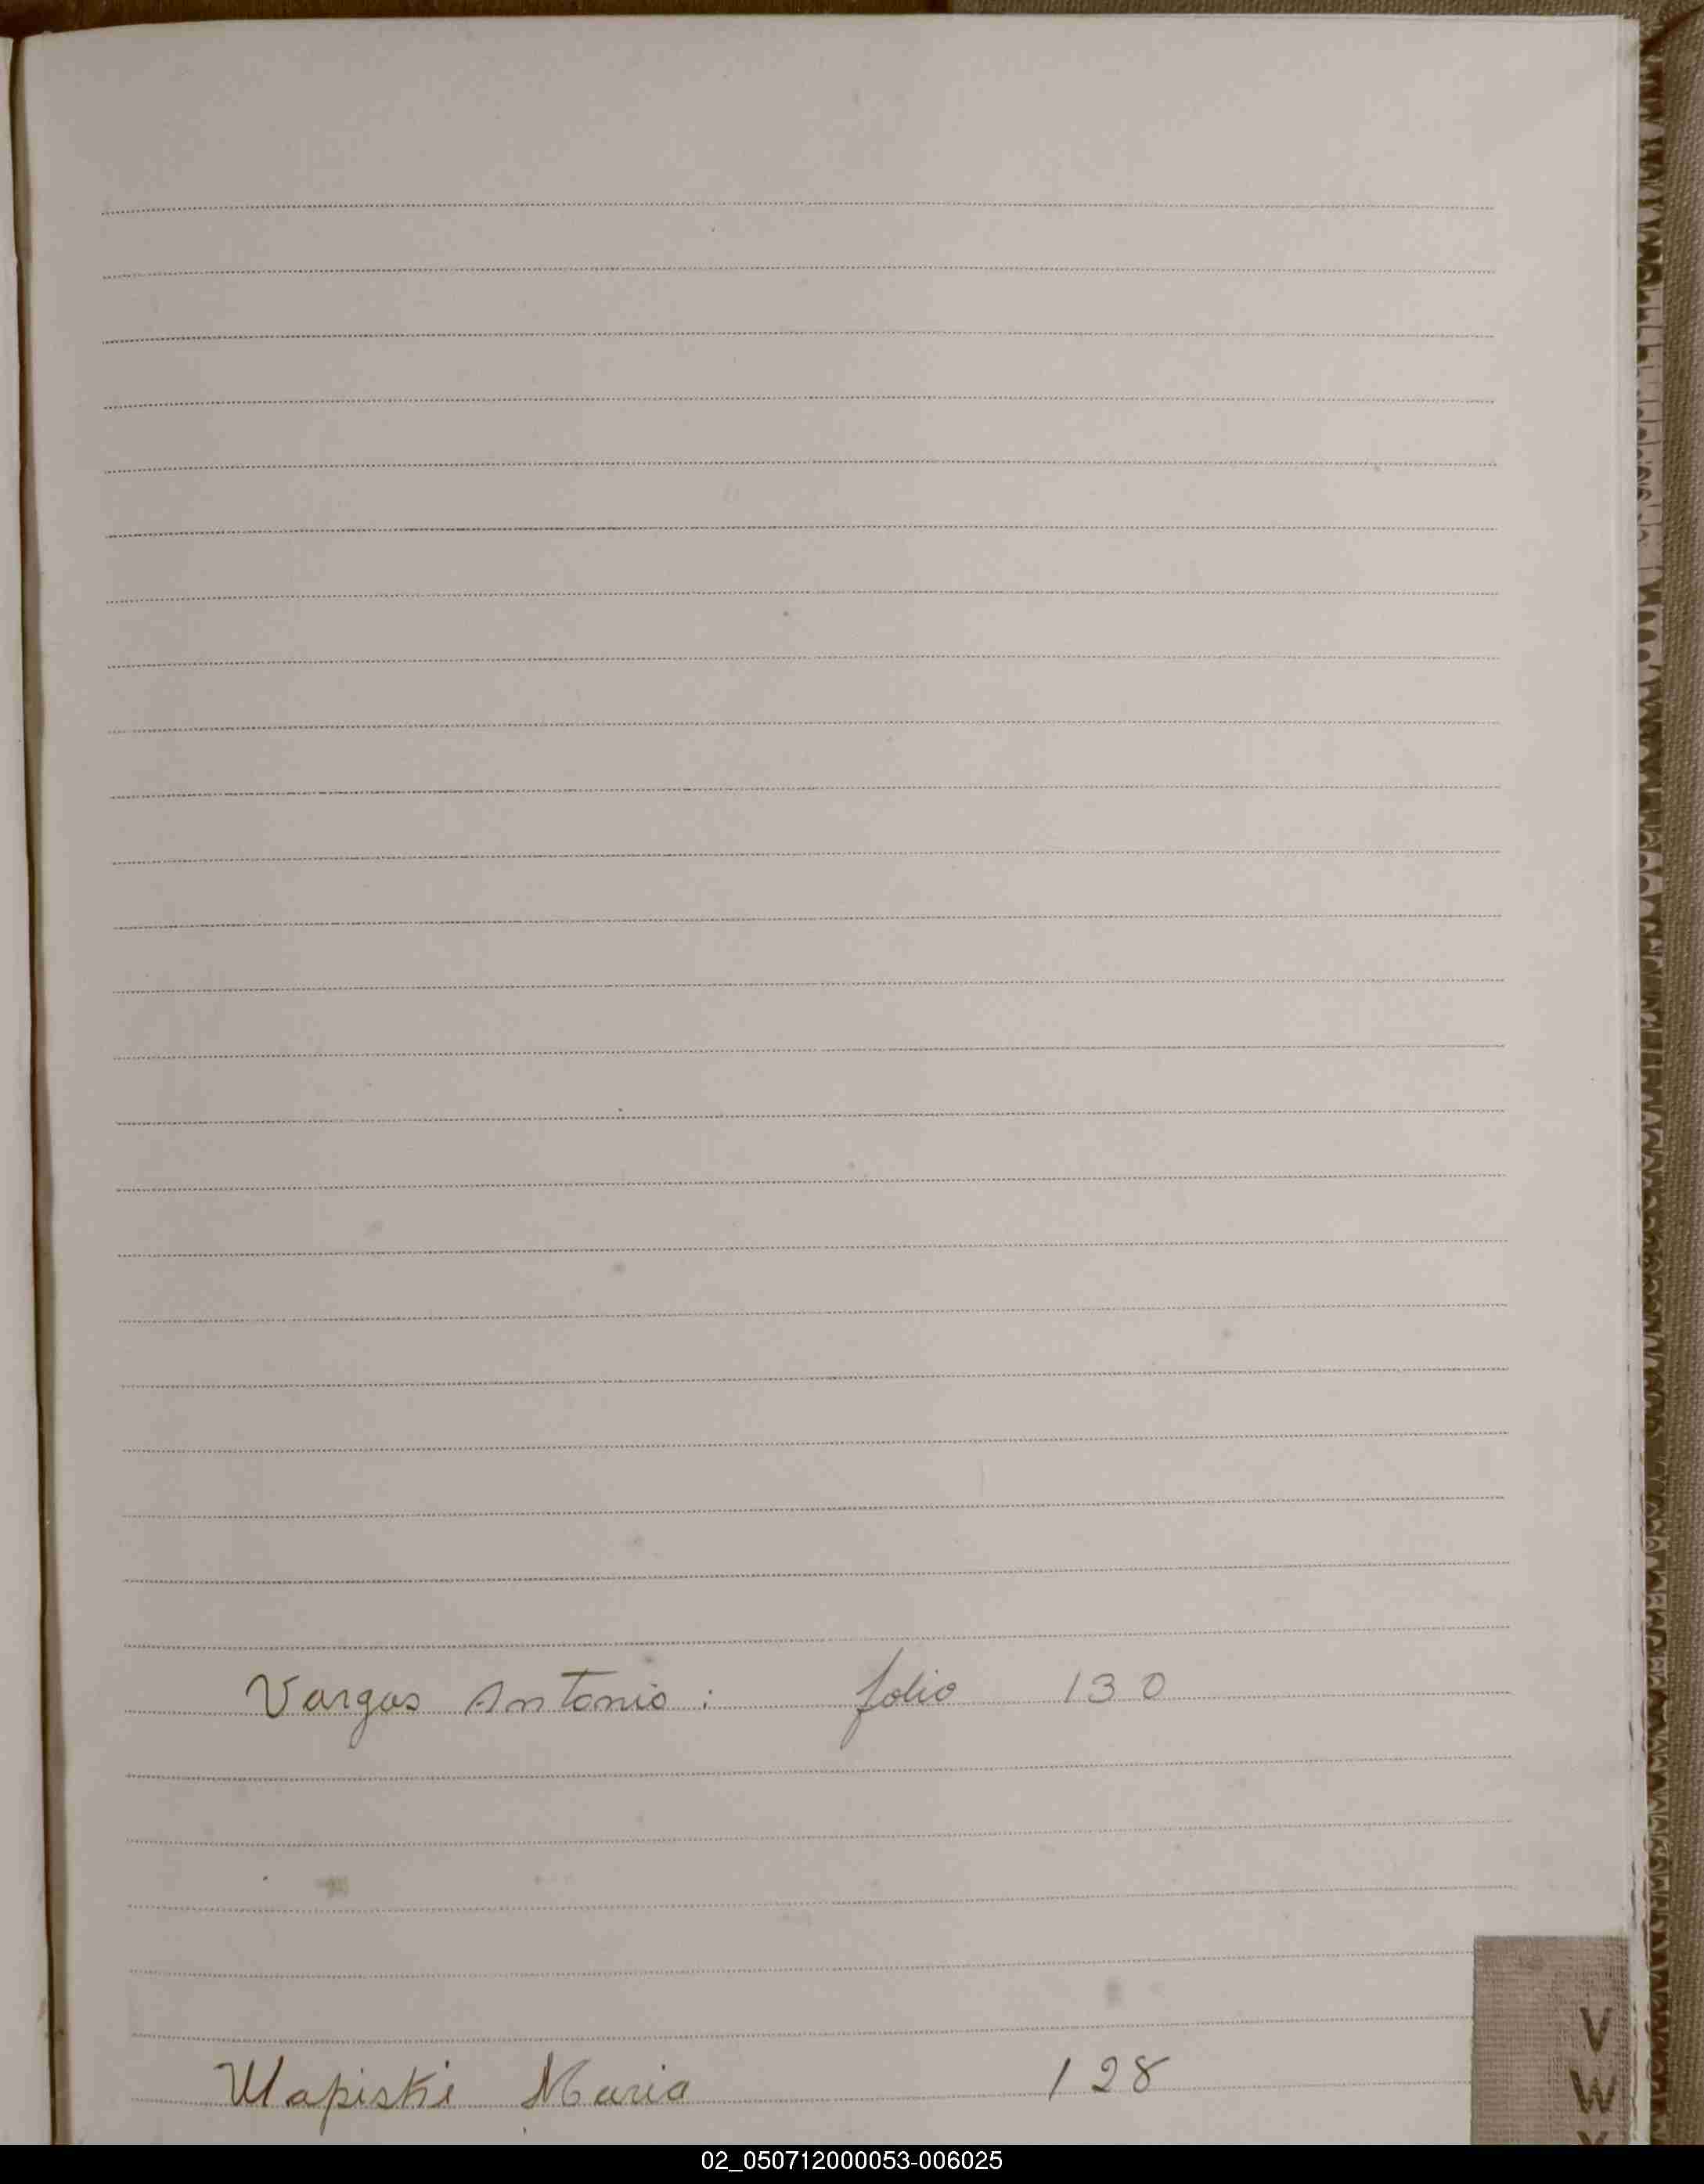 Vargas Antonio : folio 130
Wapiski Maria 128
V
W
02_050712000053-006025